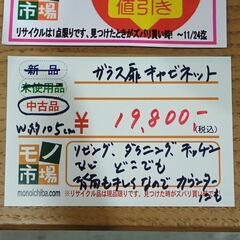 市場
値引き
リサイクルは1点限りです、見つけたときがズバリ買い時! 〜11/24迄
新品
未使用品
中古品
ガラス扉キャビネット
W約105cm
¥19,800-
(税込)
モノ市場
monoichiba.com
リビング、ダイニング、キッチン
など どこでも
背面もキレイなのでカウンター
にも
※リサイクル品は現品限りです。見つけた時がズバリ買い時